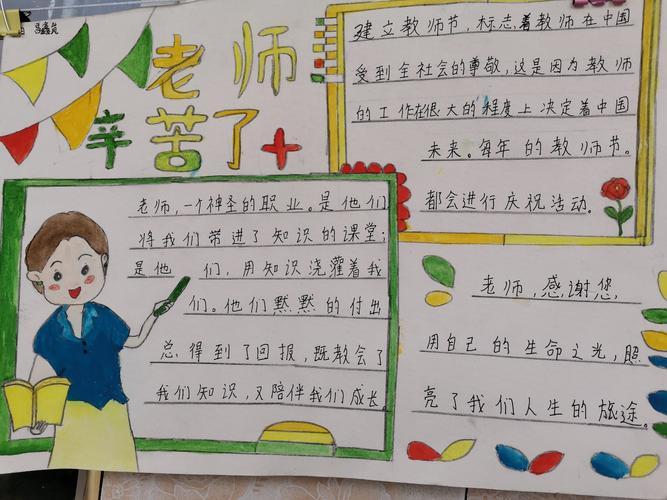 老师
辛苦了
建立教师节,标志着教师在中国
受到全社会的尊敬,这是因为教师
的工作在很大的程度上决定着中国
未来。每年的教师节。
都会进行庆祝活动。
老师,一个神圣的职业。是他们
将我们带进了知识的课堂;
是他们,用知识浇灌着我
们。他们默默的付出
总得到了回报,既教会了
我们知识,又陪伴我们成长。
老师,感谢您
用自己的生命之光,照
亮了我们人生的旅途。